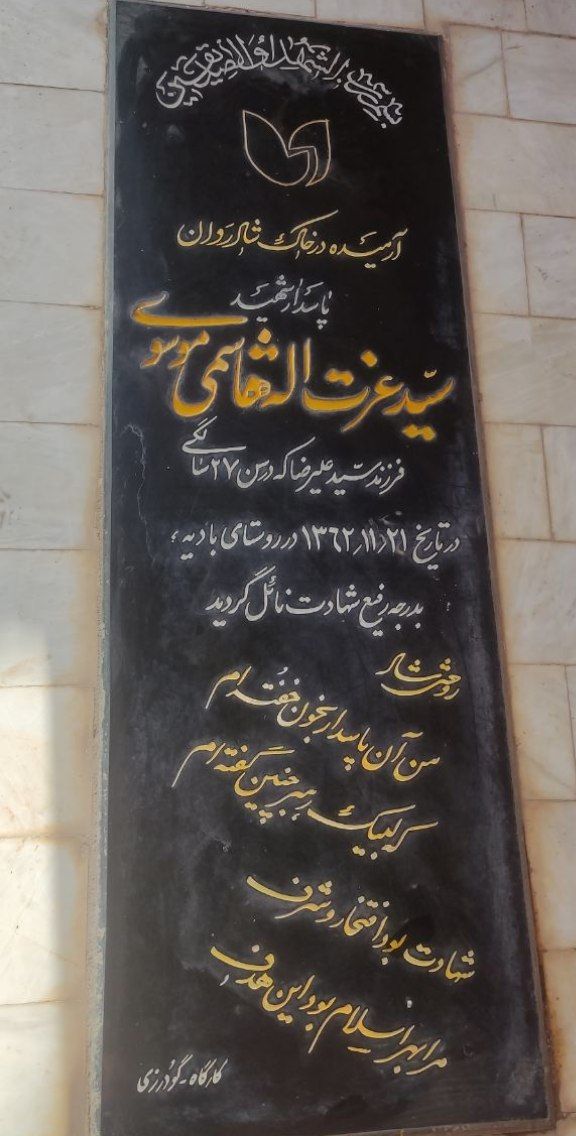 بسم رب الشهداء و الصدیقین
آرمیده در خاک شادروان
پاسدار شهید
سیّد عزت اله قاسمی موسوی
فرزند سیّد علیرضا که در سن ۲۷ سالگی
در تاریخ ۱۳٦۲٫۱۱٫۲۱ در روستای بادیه،
بدرجه رفیع شهادت نائل گردید
روحش شاد
من آن پاسدار بخون خُفته ام
که لبیک رهبر چنین گفته ام
شهادت بود افتخار و شرف
مرا بهر اسلام بود این هدف
کارگاه - گودرزی